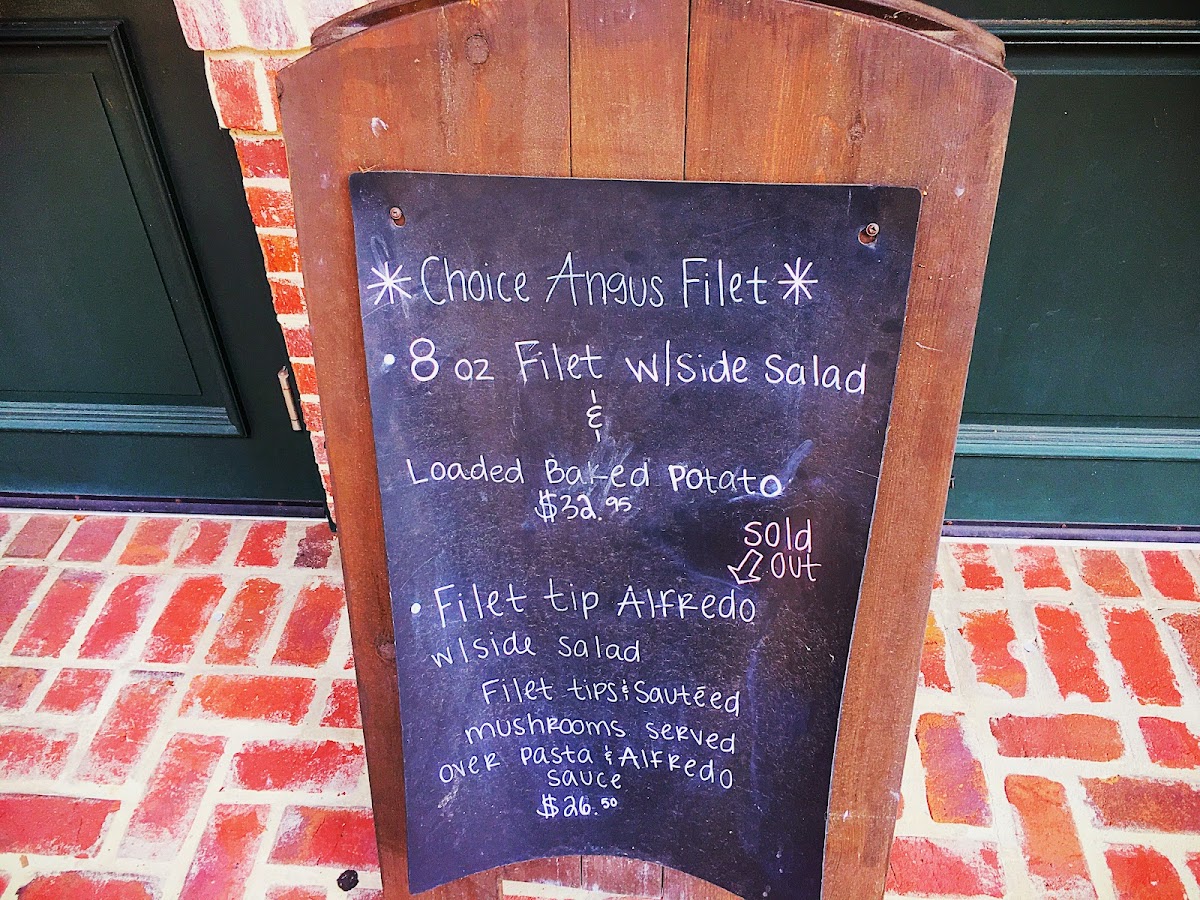 * Choice Angus Filet *
• 8 oz Filet w/side salad
&
Loaded Baked Potato
$32.95
sold
out
• Filet tip Alfredo
w/side salad
Filet tips & Sautéed
mushrooms served
over pasta & Alfredo
sauce
$26.50